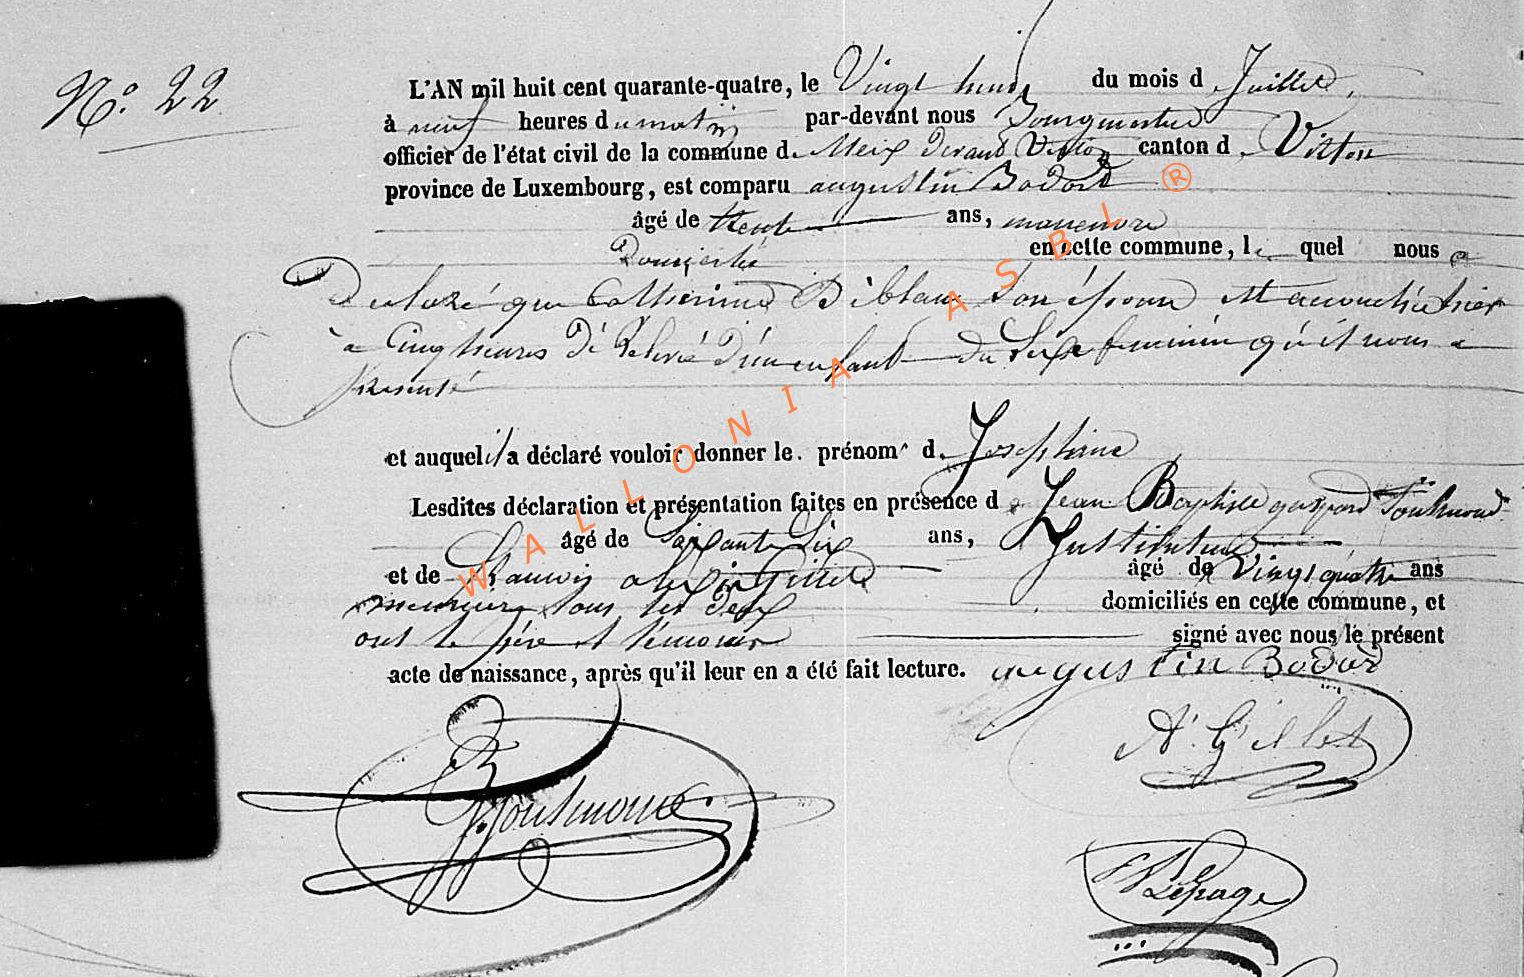 N° 22
L'AN mil huit cent quarante-quatre, le Vingt du mois d Juillet,
à neuf heures du matin par-devant nous Bourgmestre
officier de l'état civil de la commune de Meix devant Virton canton de Virton
province de Luxembourg, est comparu augustin Bodard
âgé de trente ans, manoeuvre
Domicilié en cette commune, le quel nous a
Declaré que Catherine son épouse est accouchée hier
à Cinq heures De Relevé D'un enfant du Sexe feminin qu'il nous a
presenté
et auquel il a déclaré vouloir donner le. prénom d. Josephine
Lesdites déclaration et présentation faites en présence de Jean Baptiste gaspard Toulmond
âgé de Soixante Six ans, Instituteur
et de francois alexis Gillet âgé de Vingt quatre ans
meunier tous les deux domiciliés en cette commune, et
ont le père et témoins signé avec nous le présent
acte de naissance, après qu'il leur en a été fait lecture. augustin Bodard
A. Gillet
Toulmond
Lepage
WALLONIA ASBL ®